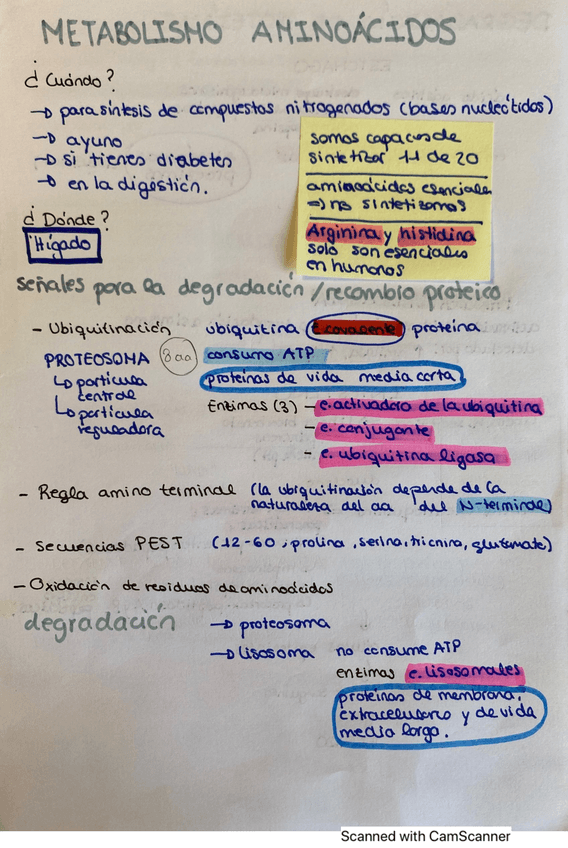 METABOLISMO AMINOÁCIDOS
¿Cuándo?
→ para síntesis de compuestos nitrogenados (bases nucleótidos)
→ ayuno
→ si tienes diabetes
→ en la digestión.
somos capaces de
sintetizar 11 de 20
aminoácidos esenciales
⇒ no sintetizamos
Arginina y histidina
solo son esenciales
en humanos
¿Dónde?
Hígado
señales para la degradación/recambio proteico
- Ubiquitinación ubiquitina (e covalente) proteína
PROTEOSOMA 8aa consume ATP
↳ partícula central
proteínas de vida media corta
↳ partícula reguladora
Enzimas (3) - e. activadora de la ubiquitina
- e. conjugante
- e. ubiquitina ligasa
- Regla amino terminal (la ubiquitinación depende de la
naturaleza del aa del N-terminal)
- Secuencias PEST (12-60, prolina, serina, tricnina, glutamate)
- Oxidación de residuos de aminoácidos
degradación → proteosoma
→ lisosoma no consume ATP
enzimas e. lisosomales
proteínas de membrana,
extracelulares y de vida
media larga.
Scanned with CamScanner